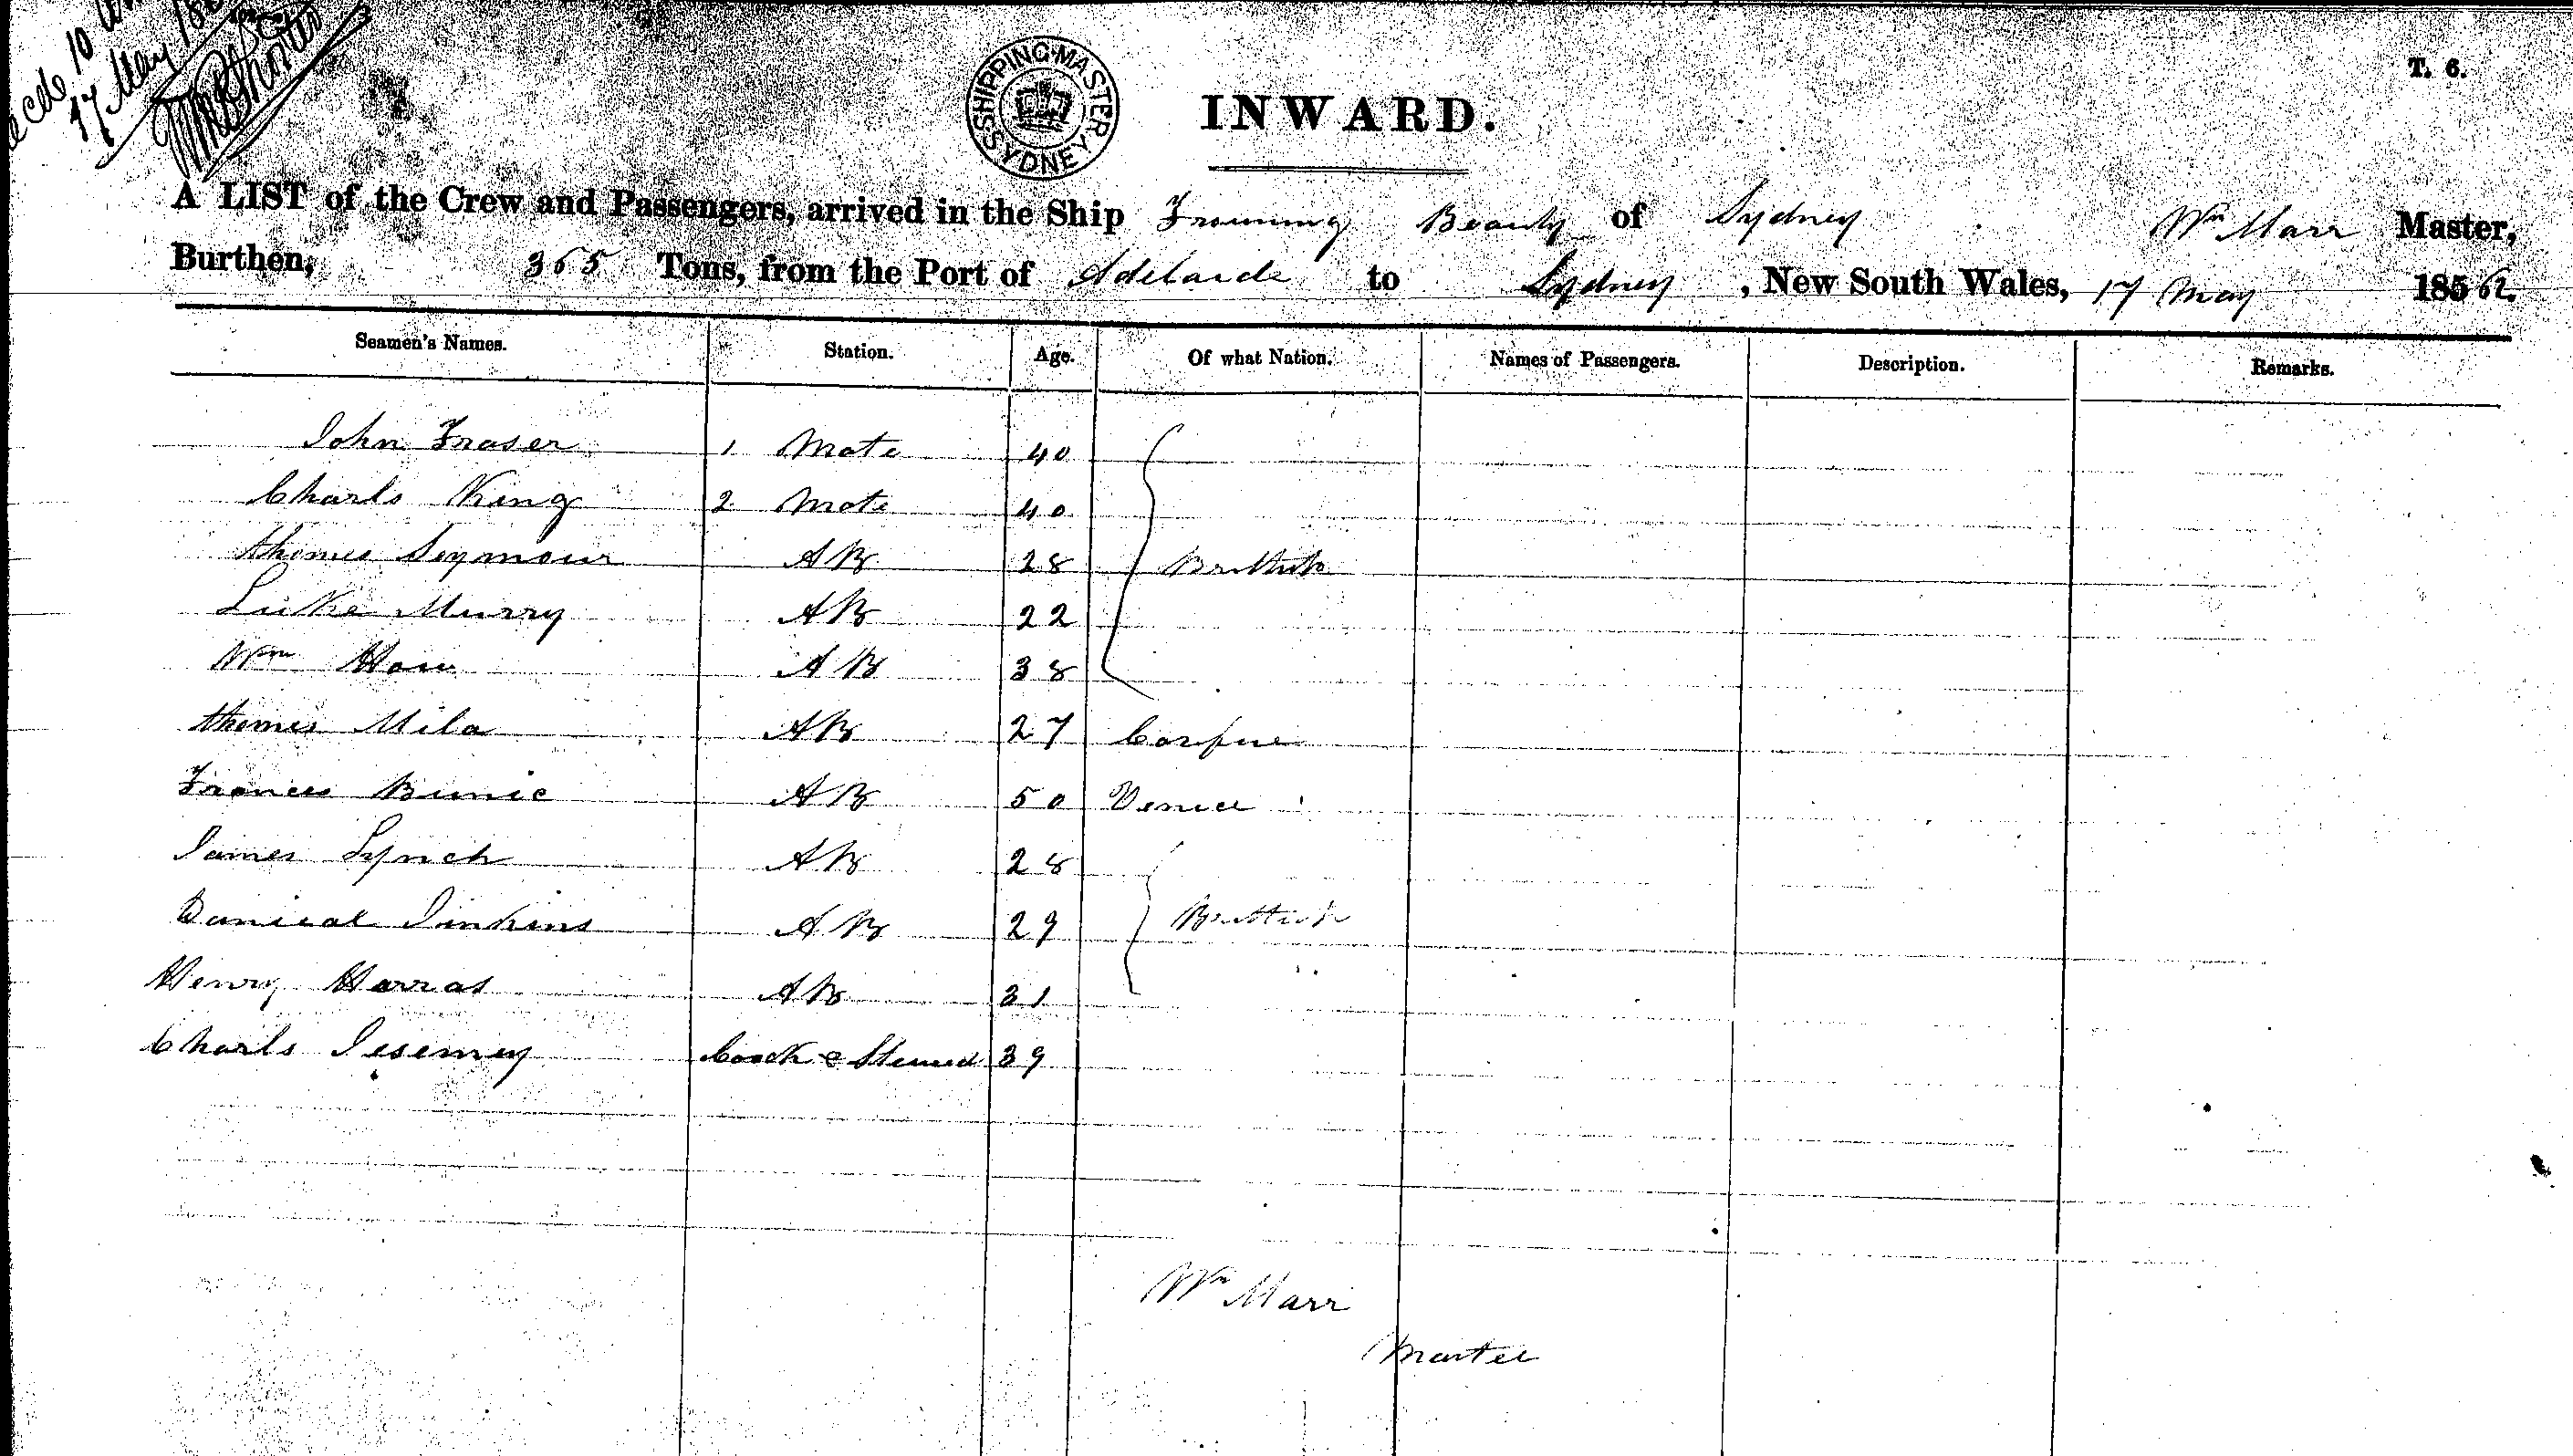 17 May
SHIPPING MASTER SYDNEY
T. 6.
INWARD.
A LIST of the Crew and Passengers, arrived in the Ship Frowning Beauty of Sydney Wm Marr Master,
Burthen, 365 Tons, from the Port of Adelaide to Sydney, New South Wales, 17 May 18562.
Seamen's Names. Station. Age. Of what Nation. Names of Passengers. Description. Remarks.
John Fraser 1 Mate 40
Charls King 2 Mate 40
thomes Seymour AB 28 Brittish
Luke Murry AB 22
Wm How AB 38
thomes Mila AB 27 Corfue
Frances Bunic AB 50 Venice
James Lynch AB 28
Danieal Jinkins AB 29 Brittish
Henry Harras AB 31
Charls Jesemey Coock & Steuerd 39
Wm Marr
Master